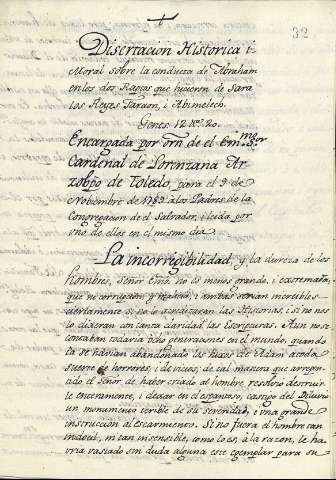 32
Disertacion Historica i
Moral sobre la conducta de Abraham
en los dos Raptos que hicieron de Sara
los Reyes Faraon, i Abimelech.
Genes. 12. 20.
Encargada por orn de el Em.mo S.or
Cardenal de Lorenzana Ar
zobpo de Toledo, para el 9 de
Noviembre de 1789 a los Padres de la
Congregacion de el Salvador, i leida por
uno de ellos en el mismo dia
La incorregibilidad, y la dureza de los
hombres, Señor Emo. no es menos grande, i extremada,
que su corrupcion y malicia; i ambas serian increibles
ciertamente si no lo aseguraran las Historias, i si no nos
lo dixeran con tanta claridad las Escrituras. Aun no se
contaban todavia ocho generaciones en el mundo, quando
ya se havian abandonado los hijos de Adam a toda
suerte de horrores, i de vicios; de tal manera que arrepen
tido el Señor de haber criado al hombre, resolvio destruir
le enteramente, i dexar en el espantoso castigo del Diluvio
un monumento terible de su serenidad, i una grande
instruccion al escarmiento. Si no fuera el hombre tan
indocil, ni tan insensible, como lo es, a la razon, le ha
vria vastado sin duda alguna este exemplar para su